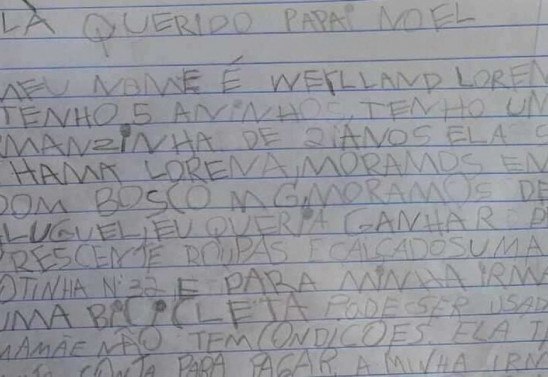 LÁ QUERIDO PAPAI NOEL
MEU NOME É WERLLAND LOREN
TENHO 5 ANINHOS TENHO UM
RMANZINHA DE 2 ANOS ELA S
HAMA LORENA, MORAMOS EM
DOM BOSCO MG, MORAMOS DE
ALUGUEL, EU QUERIA GANHAR D
PRESCENTE ROUPAS E CALÇADOS UMA
OTINHA Nº 32 E PARA MINHA IRMA
UMA BICICLETA PODE SER USAD
MAMÃE NÃO TEM CONDIÇÕES ELA T
CONTA PARA PAGAR A MINHA IRM